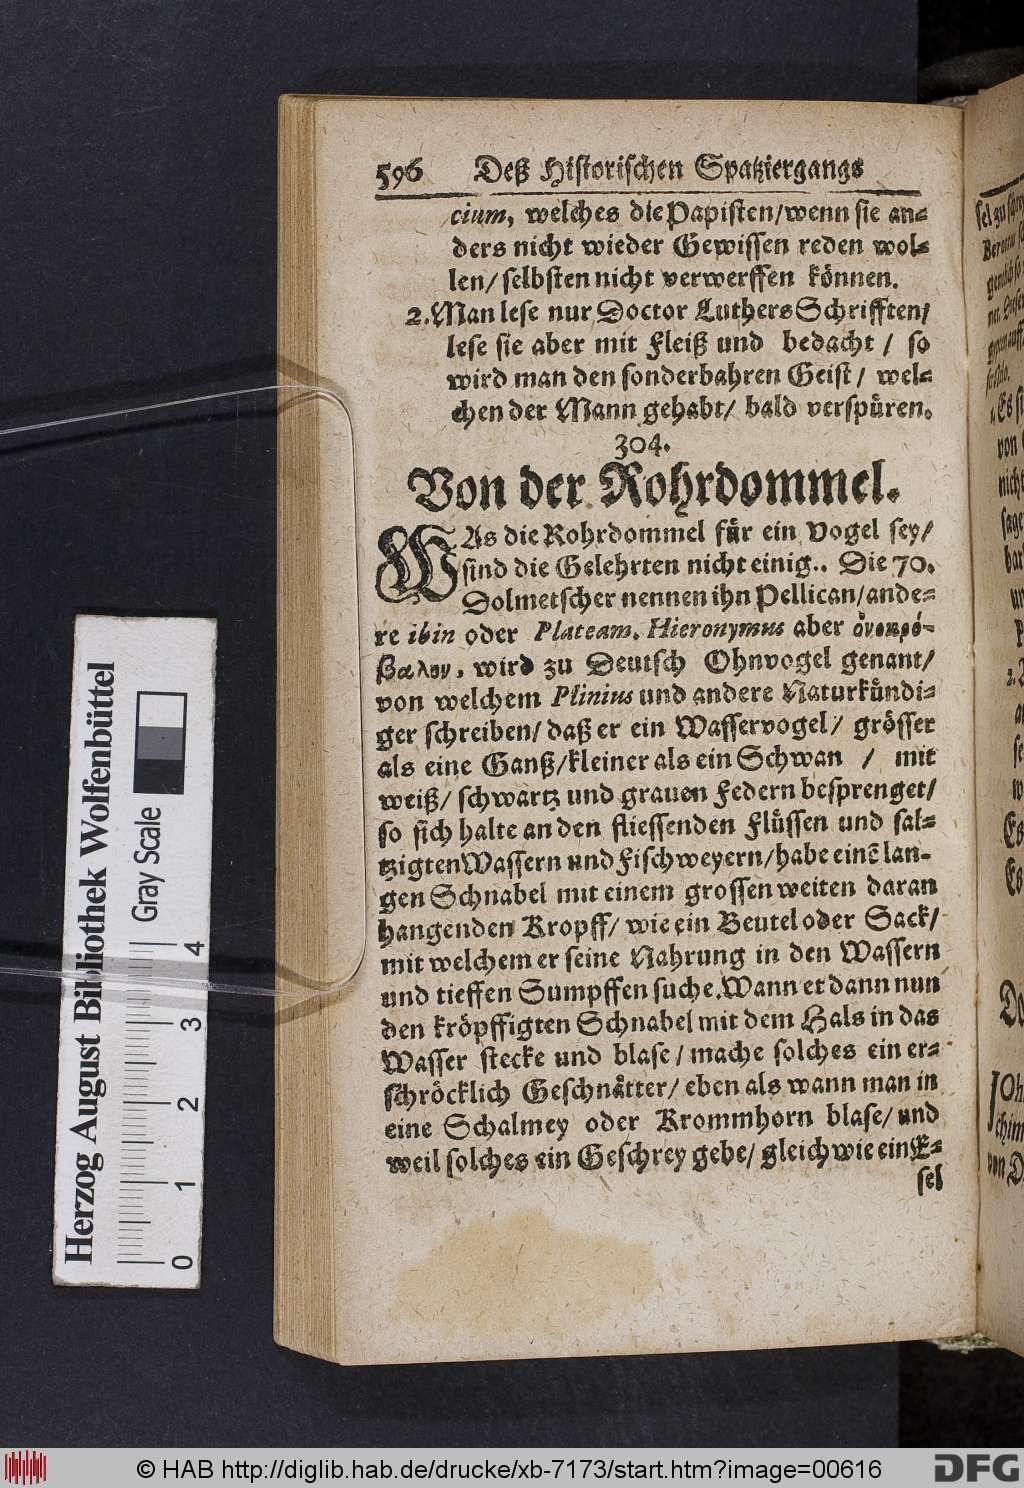 596 Deß Historischen Spatziergangs
cium, welches die Papisten/wenn sie an-
ders nicht wieder Gewissen reden wol-
len/ selbsten nicht verwerffen können.
2. Man lese nur Doctor Luthers Schrifften/
lese sie aber mit Fleiß und bedacht / so
wird man den sonderbahren Geist / wel-
chen der Mann gehabt/ bald verspüren.
304.
Von der Rohrdommel.
WAs die Rohrdommel für ein Vogel sey/
sind die Gelehrten nicht einig.. Die 70.
Dolmetscher nennen ihn Pellican/ande-
re ibin oder Plateam. Hieronymus aber ὀνοκρό-
βαλον, wird zu Deutsch Ohnvogel genant/
von welchem Plinius und andere Naturkündi-
ger schreiben/ daß er ein Wasservogel/ grösser
als eine Ganß/kleiner als ein Schwan / mit
weiß/ schwartz und grauen Federn besprenget/
so sich halte an den fliessenden Flüssen und sal-
tzigten Wassern und Fischweyern/habe einē lan-
gen Schnabel mit einem grossen weiten daran
hangenden Kropff/ wie ein Beutel oder Sack/
mit welchem er seine Nahrung in den Wassern
und tieffen Sumpffen suche. Wann er dann nun
den kröpffigten Schnabel mit dem Hals in das
Wasser stecke und blase / mache solches ein er-
schröcklich Geschnåtter/ eben als wann man in
eine Schalmey oder Krommhorn blase/ und
weil solches ein Geschrey gebe/ gleich wie ein E-
sel
Herzog August Bibliothek Wolfenbüttel
Gray Scale
0 1 2 3 4
© HAB http://diglib.hab.de/drucke/xb-7173/start.htm?image=00616
DFG